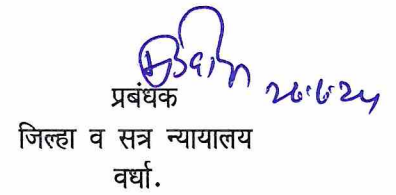 प्रबंधक
जिल्हा व सत्र न्यायालय
वर्धा.